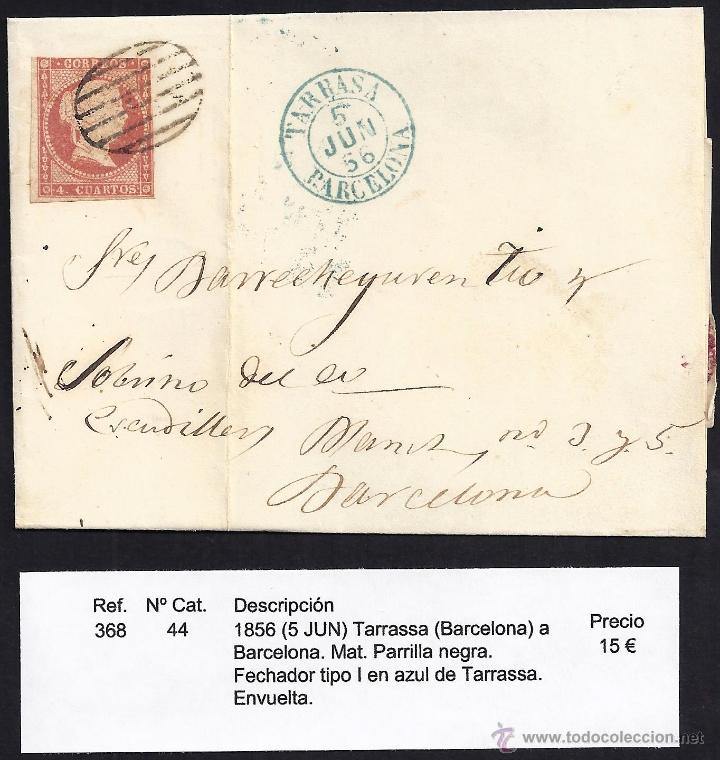 CORREOS
4. CUARTOS
TARRASA
5
JUN
56
BARCELONA
Sres Barrecheguren Tio y
Sobrino del Co
Escudillers Blanch, no 3. y 5.
Barcelona
Ref. Nº Cat. Descripción Precio
368 44 1856 (5 JUN) Tarrassa (Barcelona) a 15 €
Barcelona. Mat. Parrilla negra.
Fechador tipo I en azul de Tarrassa.
Envuelta.
© www.todocoleccion.net